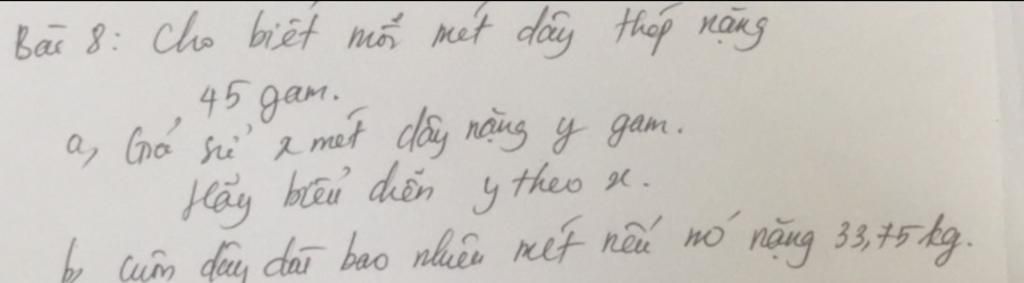 Bài 8: Cho biết mỗi mét dây thép nặng
45 gam.
a, Giả sử x mét dây nặng y gam.
Hãy biểu diễn y theo x.
b, Cuộn dây dài bao nhiêu mét nếu nó nặng 33,75kg.